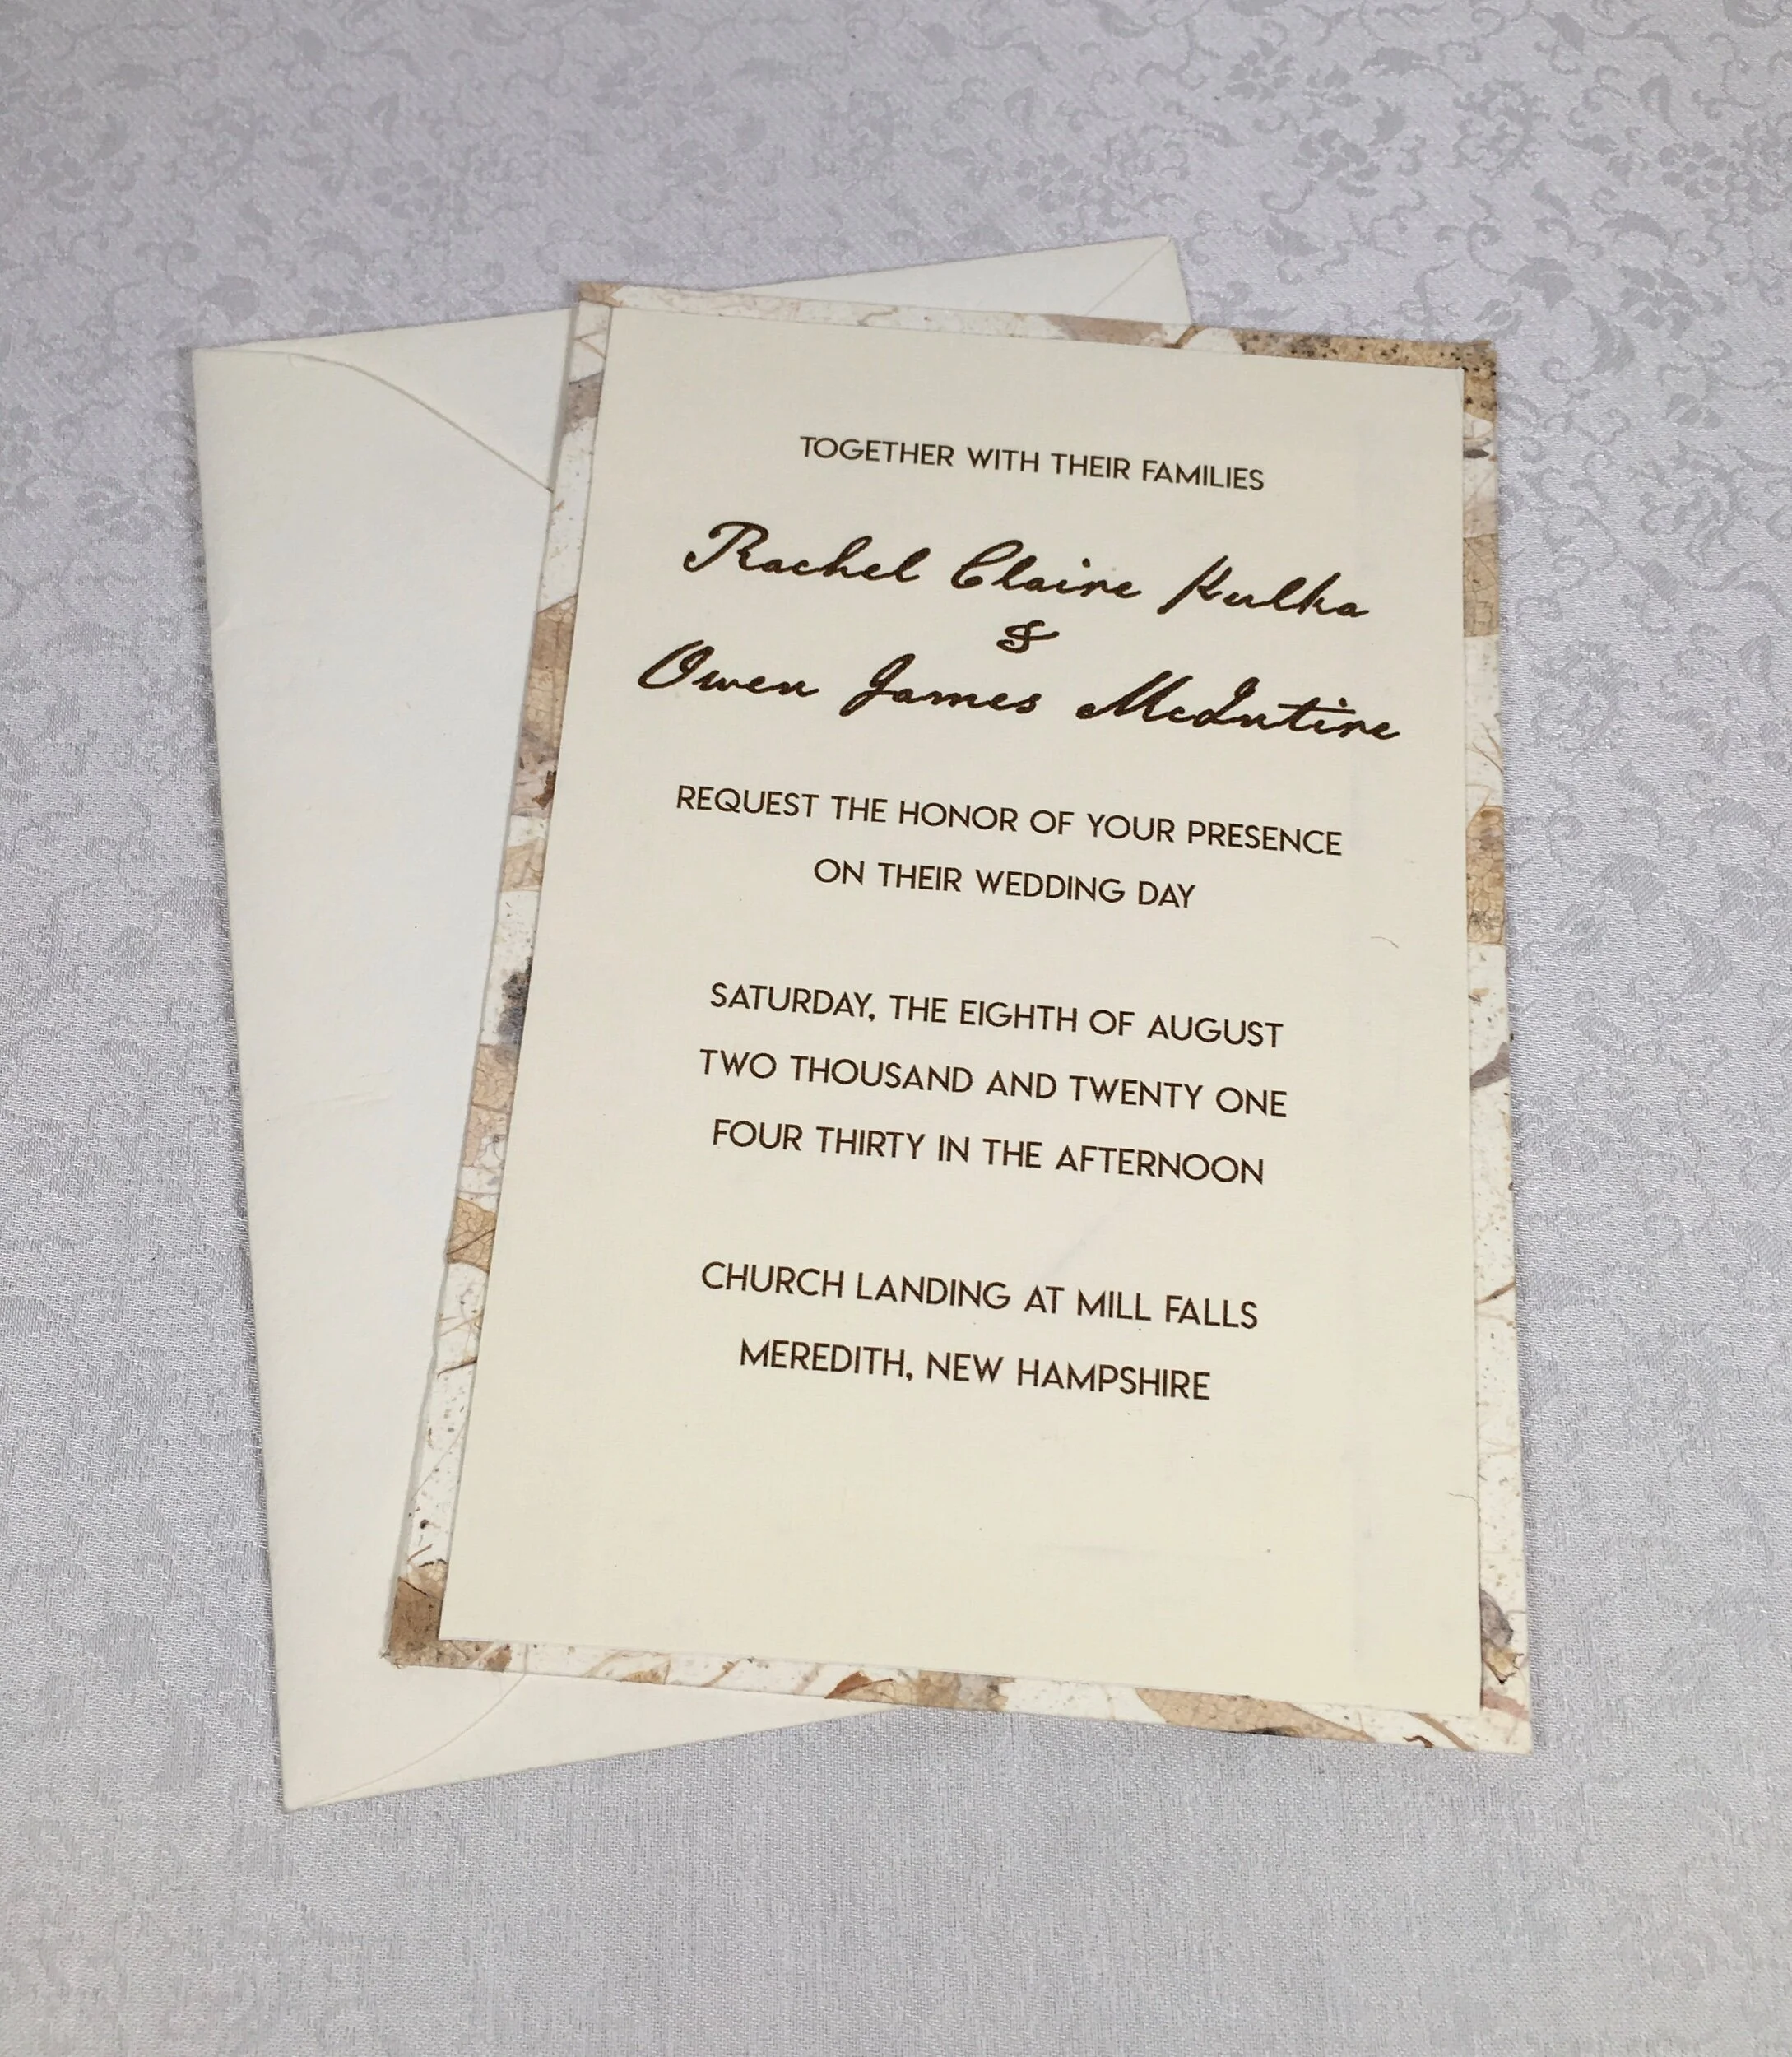 TOGETHER WITH THEIR FAMILIES
Rachel Claire Kulka
&
Owen James McIntire
REQUEST THE HONOR OF YOUR PRESENCE
ON THEIR WEDDING DAY
SATURDAY, THE EIGHTH OF AUGUST
TWO THOUSAND AND TWENTY ONE
FOUR THIRTY IN THE AFTERNOON
CHURCH LANDING AT MILL FALLS
MEREDITH, NEW HAMPSHIRE